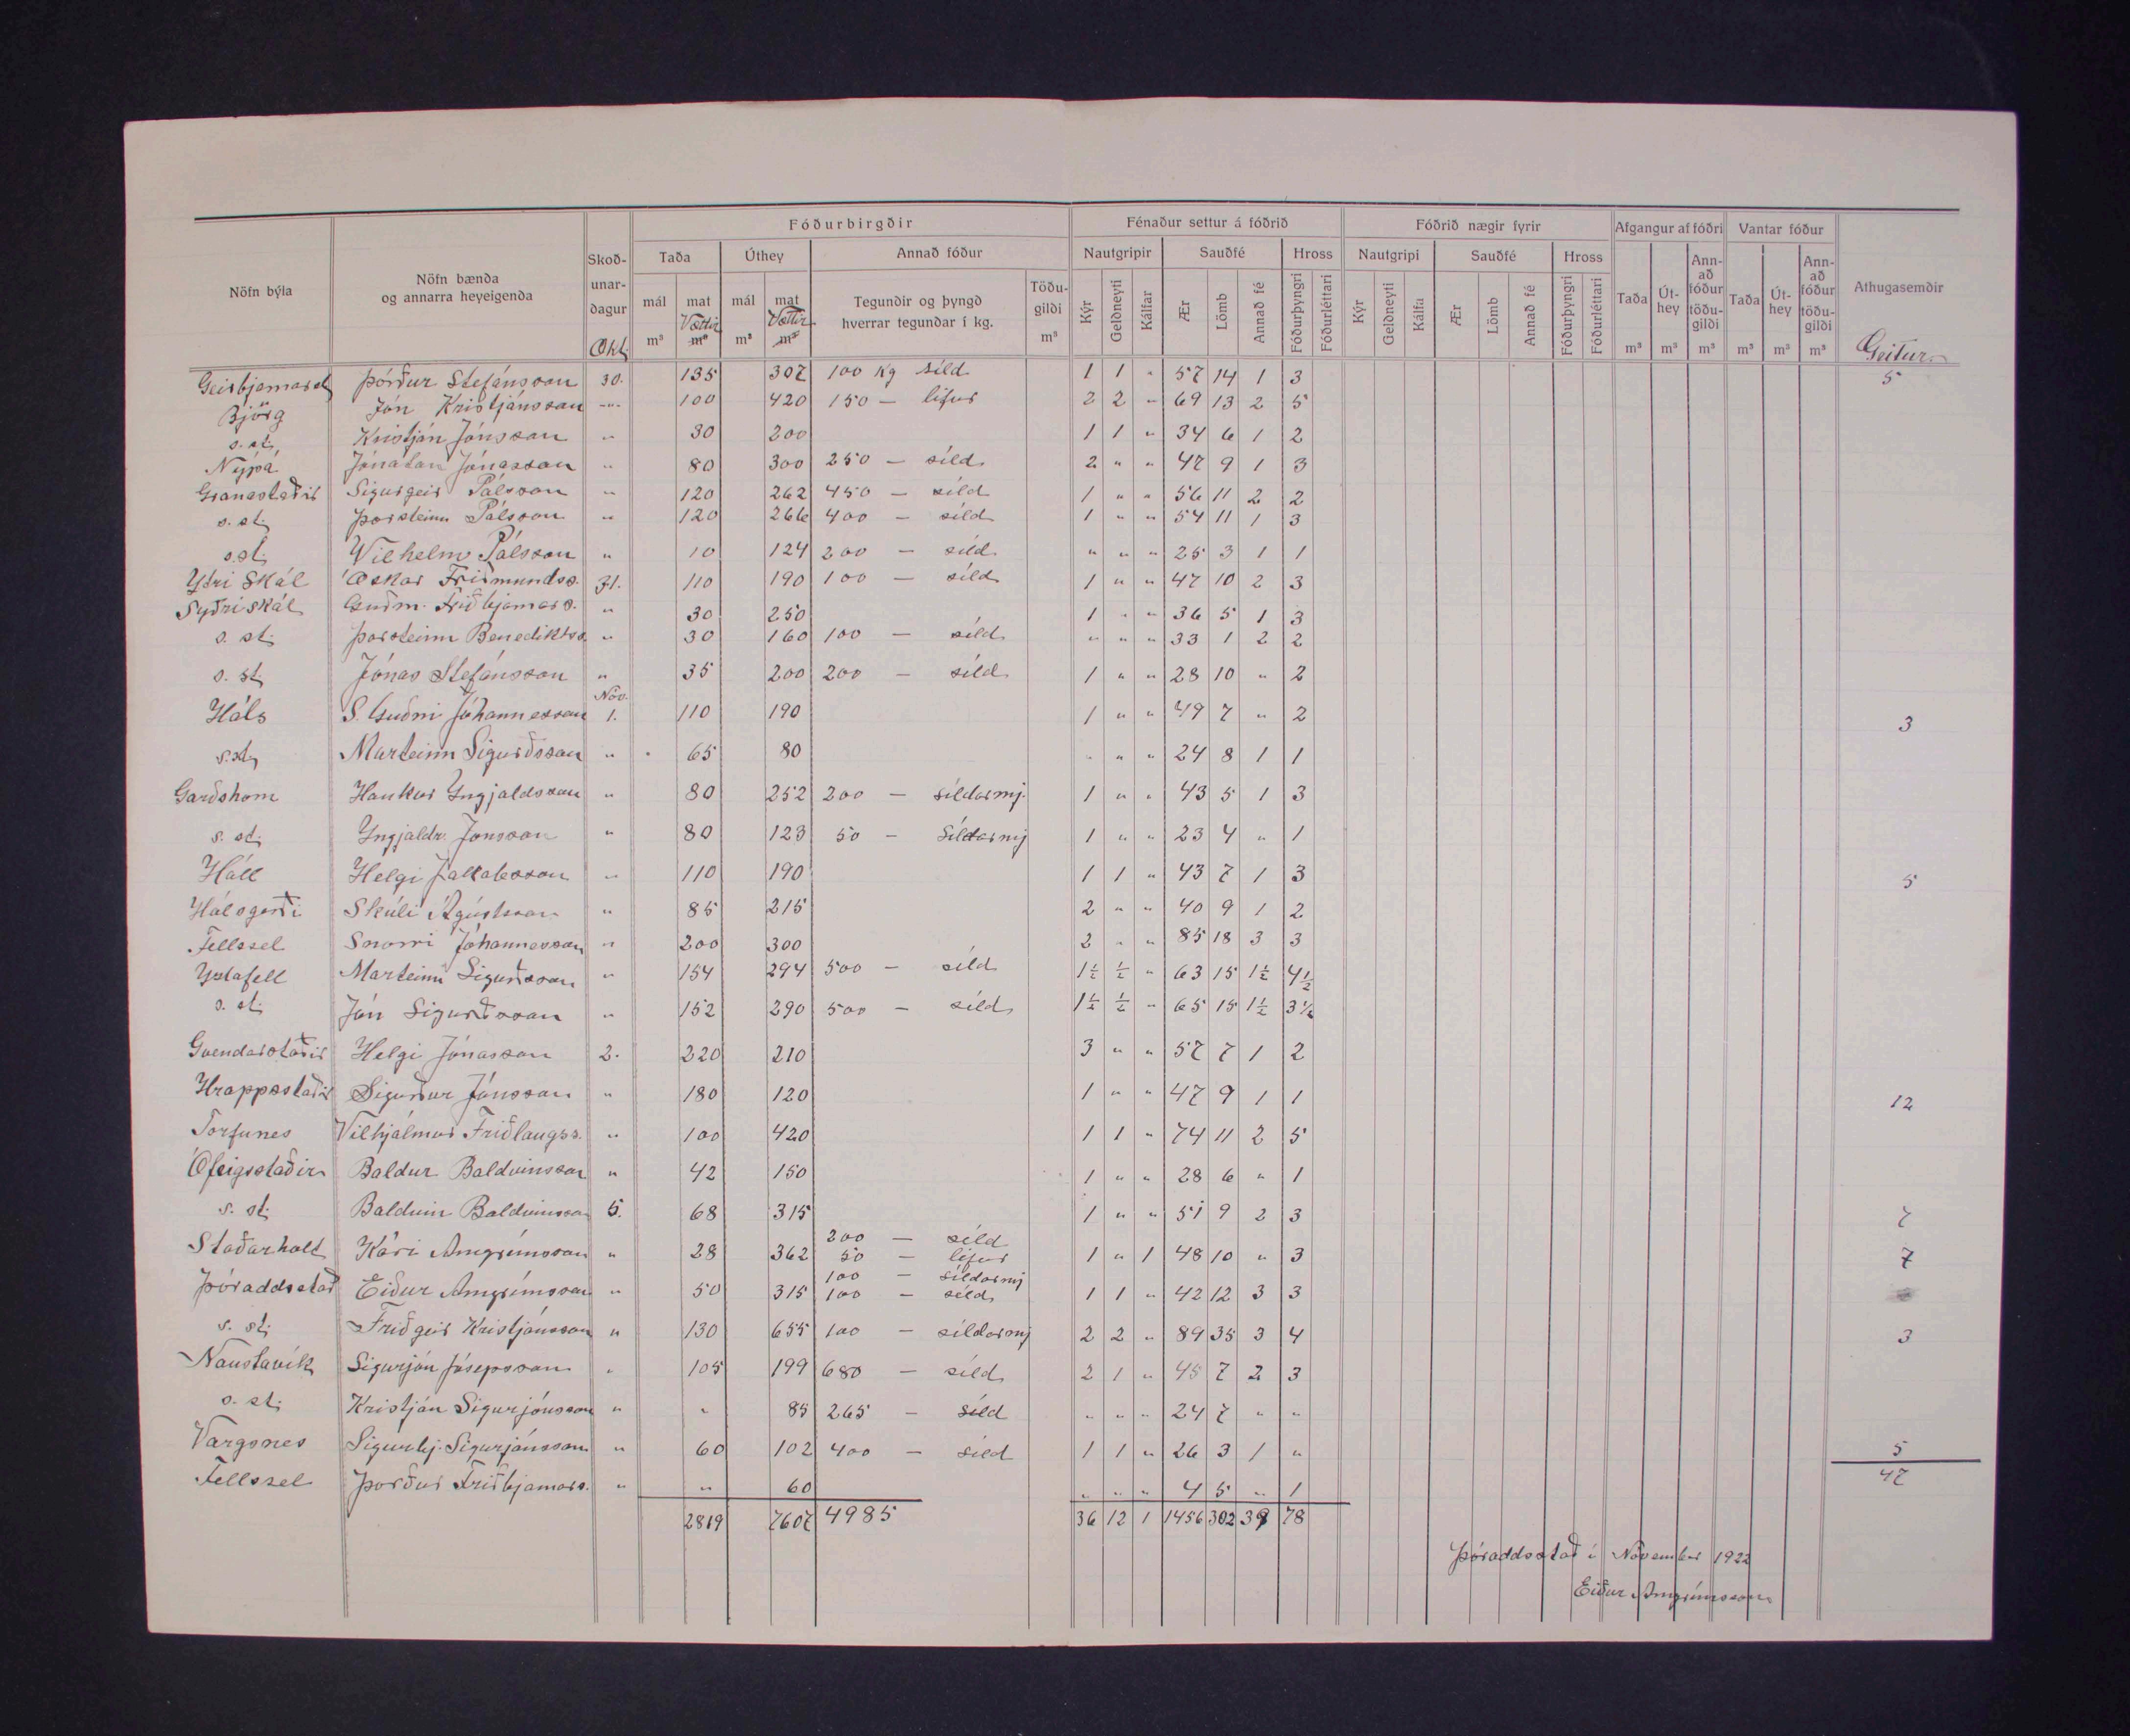 Fóðurbirgðir Fénaður settur á fóðrið Fóðrið nægir fyrir Afgangur af fóðri Vantar fóður
Nöfn býla Nöfn bænda og annarra heyeigenda Skoðunardagur Taða Úthey Annað fóður Nautgripir Sauðfé Hross Nautgripi Sauðfé Hross Taða Úthey Annað fóður töðugildi Taða Úthey Annað fóður töðugildi Athugasemdir
mál mat mál mat Tegundir og þyngd hverrar tegundar í kg. Töðugildi Kýr Geldneyti Kálfar Ær Lömb Annað fé Fóðurþyngri Fóðurléttari Kýr Geldneyti Kálfa Ær Lömb Annað fé Fóðurþyngri Fóðurléttari
Okt. m³ Vættir m³ m³ Vættir m³ m³ m³ m³ m³ m³ m³ m³ Geitur
Geirbjarnarst Þórður Stefánsson 30. 135 307 100 kg síld 1 1 " 57 14 1 3 5
Björg Jón Kristjánsson -"- 100 420 150 — lifur 2 2 " 69 13 2 5
s. st. Kristján Jónsson " 30 200 1 1 " 34 6 1 2
Nýpá Jónatan Jónasson " 80 300 250 — síld 2 " " 47 9 1 3
Granastaðir Sigurgeir Pálsson " 120 262 450 — síld 1 " " 56 11 2 2
s. st. Þorsteinn Pálsson " 120 266 400 — síld 1 " " 54 11 1 3
s.st. Wilhelm Pálsson " 10 124 200 — síld " " " 25 3 1 1
Ytri Skál Óskar Friðmundss. 31. 110 190 100 — síld 1 " " 47 10 2 3
Syðri skál Guðm. Friðbjarnars. " 30 250 1 " " 36 5 1 3
s. st. Þorsteinn Benediktss. " 30 160 100 — síld " " " 33 1 2 2
s. st. Jónas Stefánsson " 35 200 200 — síld 1 " " 28 10 " 2
Háls S. Guðni Jóhannesson Nóv. 1. 110 190 1 " " 49 7 " 2 3
s.st. Marteinn Sigurðsson " 65 80 " " " 24 8 1 1
Garðshorn Haukur Yngjaldsson " 80 252 200 — síldarmj. 1 " " 43 5 1 3
s. st. Yngjaldr. Jónsson " 80 123 50 — Síldarmj 1 " " 23 4 " 1
Háll Helgi Jakobsson " 110 190 1 1 " 43 7 1 3 5
Hálsgerði Skúli Ágústsson " 85 215 2 " " 40 9 1 2
Fellssel Snorri Jóhannesson " 200 300 2 " " 85 18 3 3
Ystafell Marteinn Sigurðsson " 154 294 500 — síld 1½ ½ " 63 15 1½ 4½
s. st. Jón Sigurðsson " 152 290 500 — síld 1½ ½ " 65 15 1½ 3½
Gvendarstaðir Helgi Jónasson 2. 220 210 3 " " 57 7 1 2
Hrappsstaðir Sigurður Jónsson " 180 120 1 " " 47 9 1 1 12
Torfunes Vilhjálmur Friðlaugss. " 100 420 1 1 " 74 11 2 5
Ófeigsstaðir Baldur Baldvinsson " 42 150 1 " " 28 6 " 1
s. st. Baldvin Baldvinsson 5. 68 315 1 " " 51 9 2 3 7
Staðarholt Kári Arngrímsson " 28 362 200 — síld 50 — lifur 1 " 1 48 10 " 3 7
Þóroddsstað Eiður Arngrímsson " 50 315 100 — síldarmj 100 — síld 1 1 " 42 12 3 3
s. st. Friðgeir Kristjánsson " 130 655 100 — síldarmj 2 2 " 89 35 3 4 3
Naustavík Sigurjón Jósepsson " 105 199 680 — síld 2 1 " 45 7 2 3
s. st. Kristján Sigurjónsson " " 85 265 — síld " " " 24 7 " "
Vargsnes Sigurbj. Sigurjónsson " 60 102 400 — síld 1 1 " 26 3 1 " 5
Fellssel Þorður Friðbjarnars. " " 60 " " " 4 5 " 1 47
2819 7607 4985 36 12 1 1456 302 39 78
Þóroddsstað í Nóvember 1922
Eiður Arngrímsson